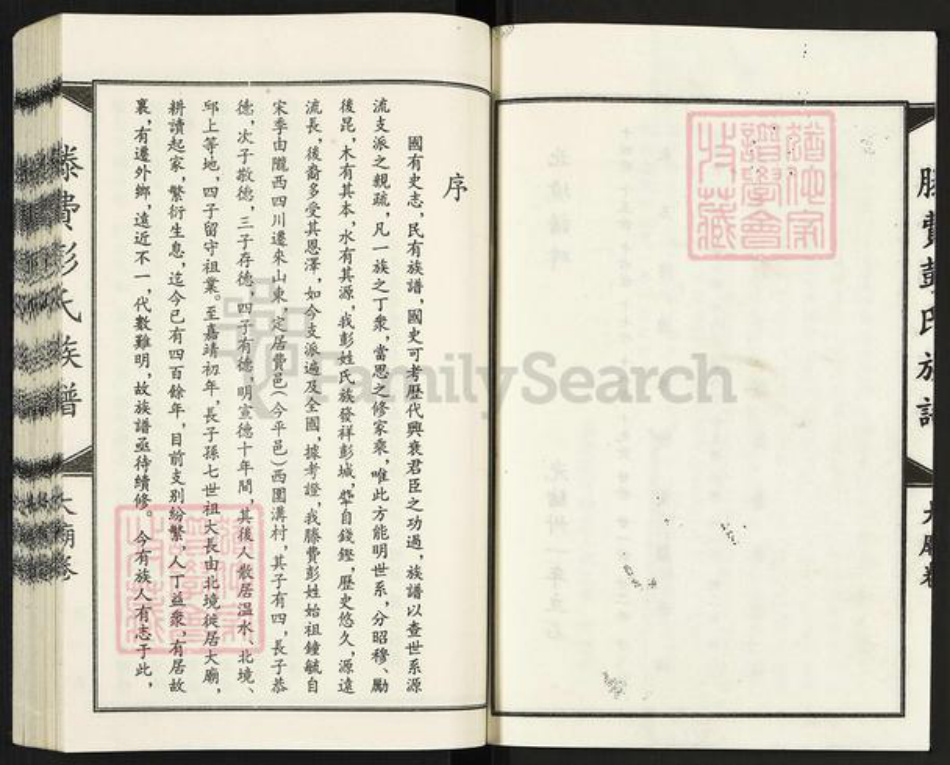 滕費彭氏族譜
大廟卷
序
國有史志，民有族譜，國史可考歷代興衰君臣之功過，族譜以查世系源
流支派之親疏，凡一族之丁衆，當思之修家乘，唯此方能明世系，分昭穆、勵
後昆，木有其本，水有其源，我彭姓氏族發祥彭城，肇自錢鏗，歷史悠久，源遠
流長，後裔多受其恩澤，如今支派遍及全國，據考證，我滕費彭姓始祖鐘毓自
宋季由隴西四川遷來山東，定居費邑（今平邑）西圍溝村，其子有四，長子恭
德，次子敬德，三子存德，四子有德，明宣德十年間，其後人散居溫水、北境、
邱上等地，四子留守祖業。至嘉靖初年，長子孫七世祖大長由北境徙居大廟，
耕讀起家，繁衍生息，迄今已有四百餘年，目前支別紛繁，人丁益衆，有居故
裏，有遷外鄉，遠近不一，代數難明，故族譜亟待續修。今有族人有志于此，
滕費彭氏族譜
大廟卷
FamilySearch